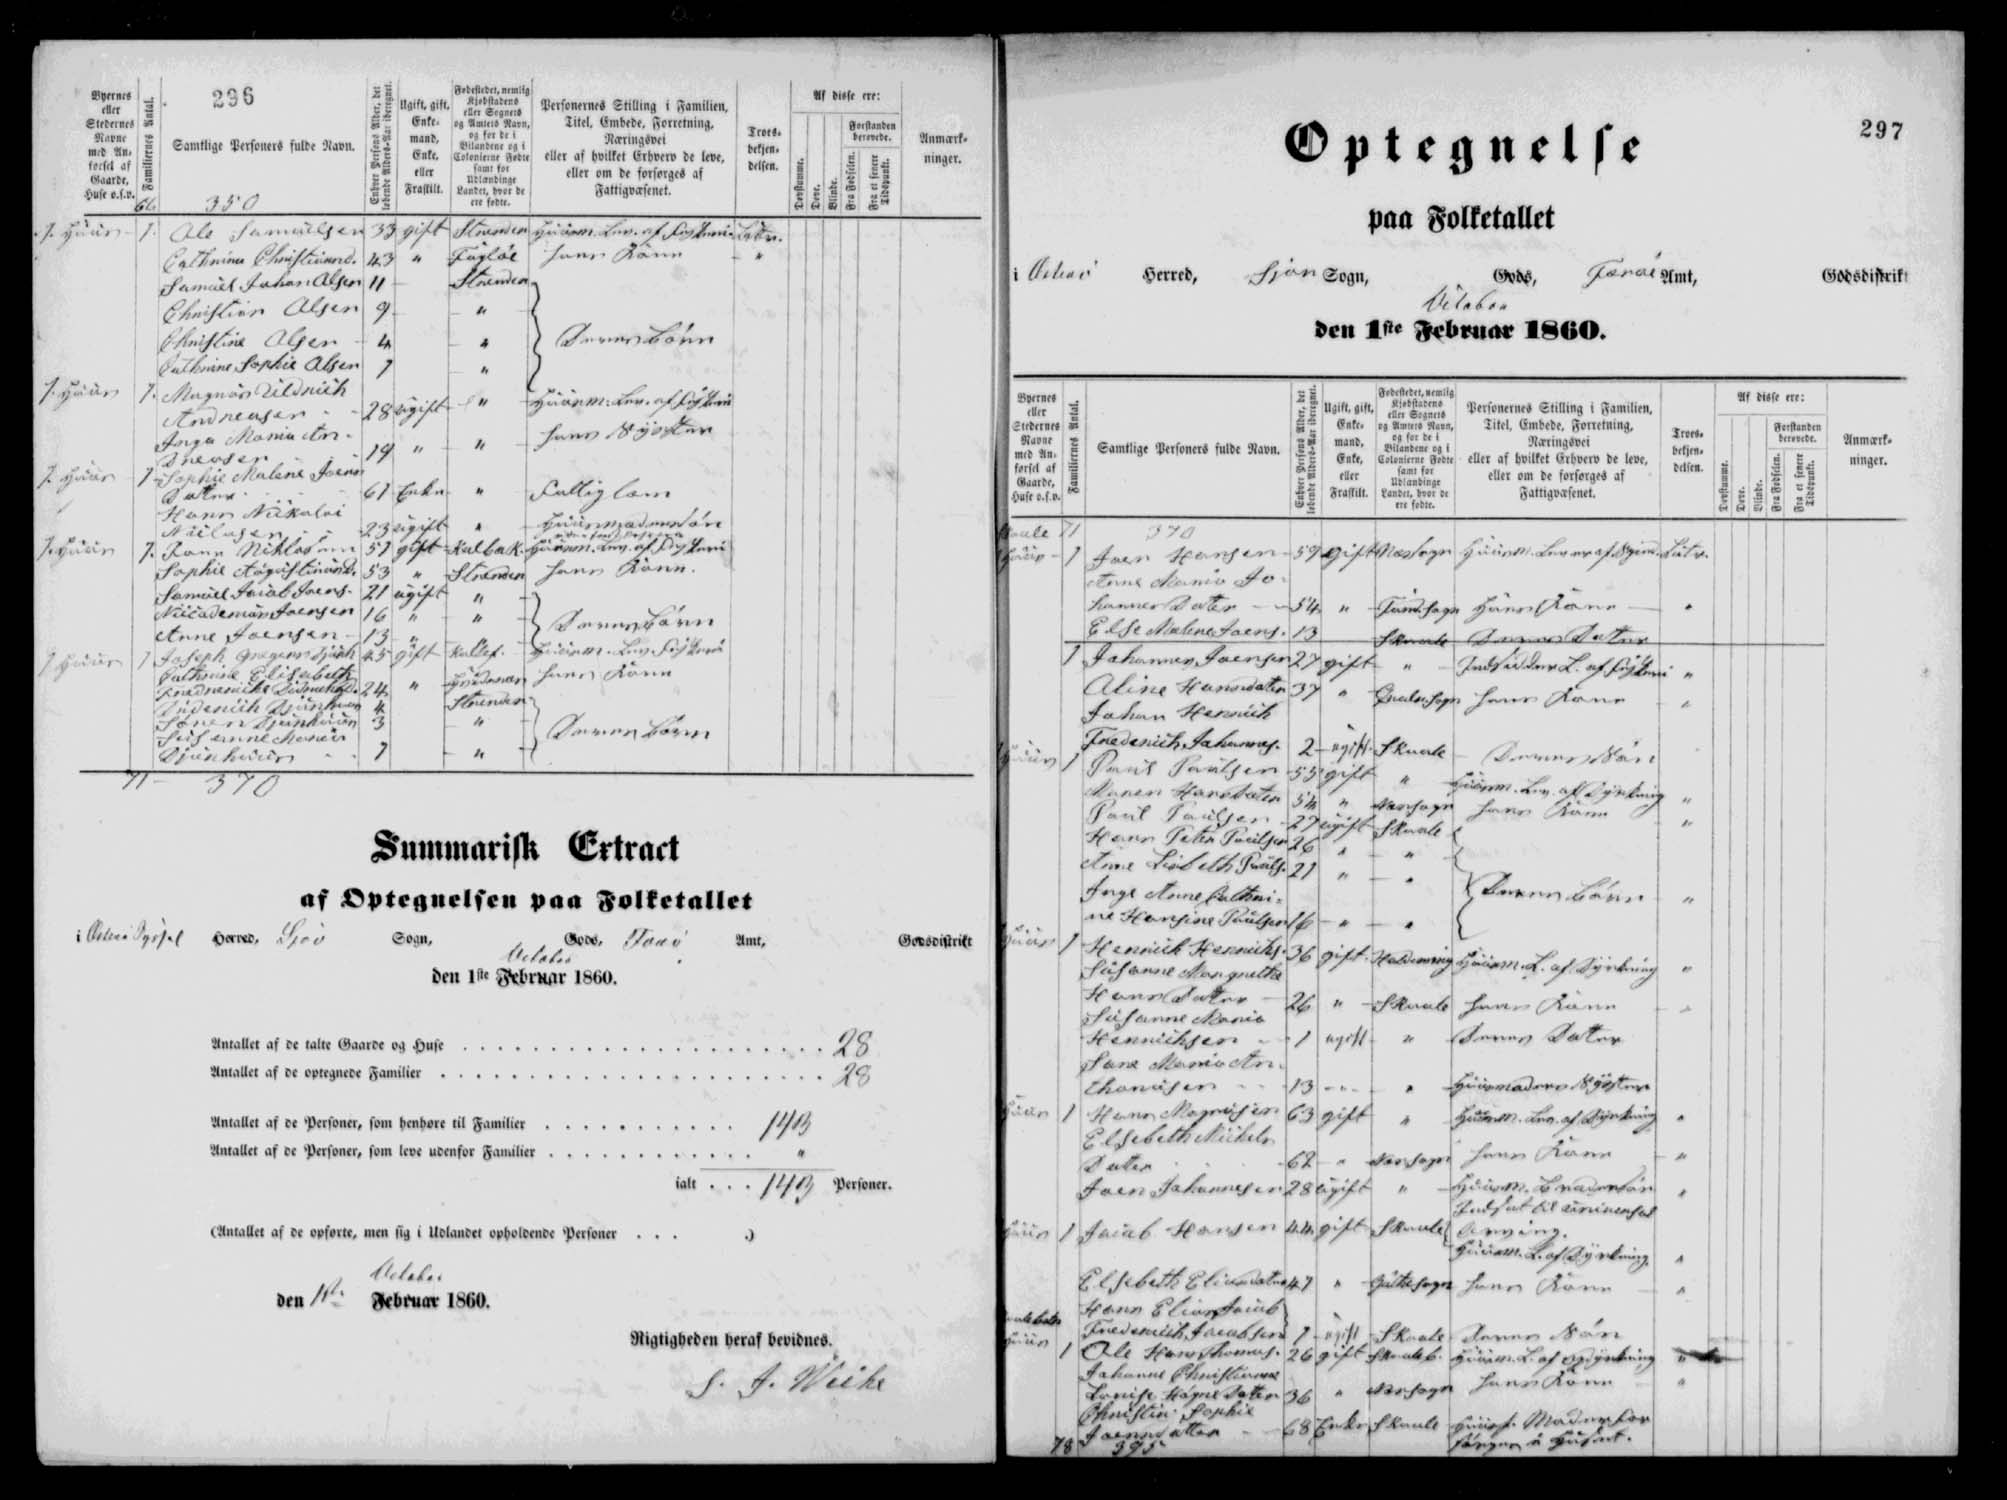 296
Byernes eller Stedernes Navne med Anførsel af Gaarde, Huse o.s.v.
Familiernes Antal.
Samtlige Personers fulde Navn.
Enhver Persons Alder, det løbende Alders-Aar iberegnet.
Ugift, gift, Enkemand, Enke, eller Fraskilt.
Fødestedet, nemlig Kjøbstadens eller Sognets og Amtets Navn, og for de i Bilandene og i Colonierne Fødte samt for Udlændinge Landet, hvor de ere fødte.
Personernes Stilling i Familien, Titel, Embede, Forretning, Næringsvei eller af hvilket Erhverv de leve, eller om de forsørges af Fattigvæsenet.
Troesbekjendelsen.
Af disse ere:
Døvstumme.
Døve.
Blinde.
Forstanden berøvede.
Fra Fødselen.
Fra et senere Tidspunkt.
Anmærkninger.
350
1. Huus 1. Ole Samuelsen 33 gift Strenden Huusm. Lev. af Fiskeri Luth.
Cathrina Christiansd. 43 " Fugløe hans Kone "
Samuel Johan Olsen 11 Strenden
Christian Olsen 9 "
Christine Olsen 4 " Deres Børn
Cathrine Sophie Olsen 1 "
1. Huus 1. Magnus Uldrich
Andreasen 28 ugift " Huusm. Lev. af Fiskeri
Inga Maria An-
dreasen 19 " " hans Syster
1. Huus 1 Sophie Malene Joens
Datter 61 Enke " Fattiglem
Hans Nickolai
23 ugift "
1. Huus 1. 57 gift Kalbak. Huusm. Lev. af Fiskeri
Sophie Augustinusd. 53 " Strenden hans Kone.
Samuel Jacob Joens. 21 ugift "
Nicodemus Joensen 16 " "
Anne Joensen 13 " Deres Børn
1 Huus 1 Joseph 45 gift Huusm. Lev. Fiskeri
Cathrine Elisabeth
24 " hans Kone
Diderich 4 Strenden
Søren 3 "
Susanne Maria Deres Børn
1 "
71 370
Summarisk Extract
af Optegnelsen paa Folketallet
i Østerø Syssel Herred, Sjov Sogn, Gods, Færø Amt, Godsdistrikt
October
den 1ste Februar 1860.
Antallet af de talte Gaarde og Huse 28
Antallet af de optegnede Familier 28
Antallet af de Personer, som henhøre til Familier 143
Antallet af de Personer, som leve udenfor Familier "
ialt 143 Personer.
(Antallet af de opførte, men sig i Udlandet opholdende Personer .)
October
den 1ste Februar 1860.
Rigtigheden heraf bevidnes.
S. J. Weihe
297
Optegnelse
paa Folketallet
i Østerø Herred, Sjov Sogn, Gods, Færøe Amt, Godsdistrikt
October
den 1ste Februar 1860.
Byernes eller Stedernes Navne med Anførsel af Gaarde, Huse o.s.v.
Familiernes Antal.
Samtlige Personers fulde Navn.
Enhver Persons Alder, det løbende Alders-Aar iberegnet.
Ugift, gift, Enkemand, Enke, eller Fraskilt.
Fødestedet, nemlig Kjøbstadens eller Sognets og Amtets Navn, og for de i Bilandene og i Colonierne Fødte samt for Udlændinge Landet, hvor de ere fødte.
Personernes Stilling i Familien, Titel, Embede, Forretning, Næringsvei eller af hvilket Erhverv de leve, eller om de forsørges af Fattigvæsenet.
Troesbekjendelsen.
Af disse ere:
Døvstumme.
Døve.
Blinde.
Forstanden berøvede.
Fra Fødselen.
Fra et senere Tidspunkt.
Anmærkninger.
Skaale 71 370
Huus 1 Joen Hansen 59 gift Næssogn Huusm. Luth.
Anne Maria Jo-
hannes Datter 54 " hans Kone "
Else Malene Joens. 13 Skaale Deres Datter
1 Johannes Joensen 27 gift " Indsidder L. af Fiskeri "
Aline Hansdatter 37 " Qvalv.sogn hans Kone "
Johan Henrich
Frederich Johannes. 2 ugift Skaale Deres Søn
Huus 1 Paul Paulsen 55 gift " Huusm. Lev. af Dyrkning "
Maren Hansdatter 54 " Næssogn hans Kone "
Paul Paulsen 27 ugift Skaale
Hans Peter Paulsen 26 " "
Anne Lisbeth Pauls. 21 " "
Inge Anne Cathri- Deres Børn "
ne Hansine Paulsen 16 " "
Huus 1 Henrich Henrichs. 36 gift Huusm. L. af Dyrkning "
Susanne Margretha
Hans Datter 26 " Skaale hans Kone "
Susanne Maria
Henrichsen 1 ugift " Deres Datter
Sara Maria An-
thoniusen 13 " Huusmoders Syster
Huus 1 Hans Magnusen 63 gift " Huusm. Lev. af Dyrkning "
Elsebeth Michels
Datter 62 " Næssogn hans Kone "
Joen Johannesen 28 ugift " Huusm. Brodersøn "
Indsat til universal
Huus 1 Jacob Hansen 44 gift Skaale Arving.
Huusm. L. af Dyrkning "
Elsebeth Eliasdatter 47 " Gøthesogn hans Kone "
Hans Elias Jacob
Frederich Jacobsen 1 ugift Skaale Deres Søn
Huus 1 Ole Hans Thomas. 26 gift Skaaleb. Huusm. L. af Dyrkning "
Johanne Christiane
Lovise Høgne Datter 36 " Næssogn hans Kone "
Christine Sophie
Joensdatter 68 Enke Skaale Huusf. Moder for
78 395